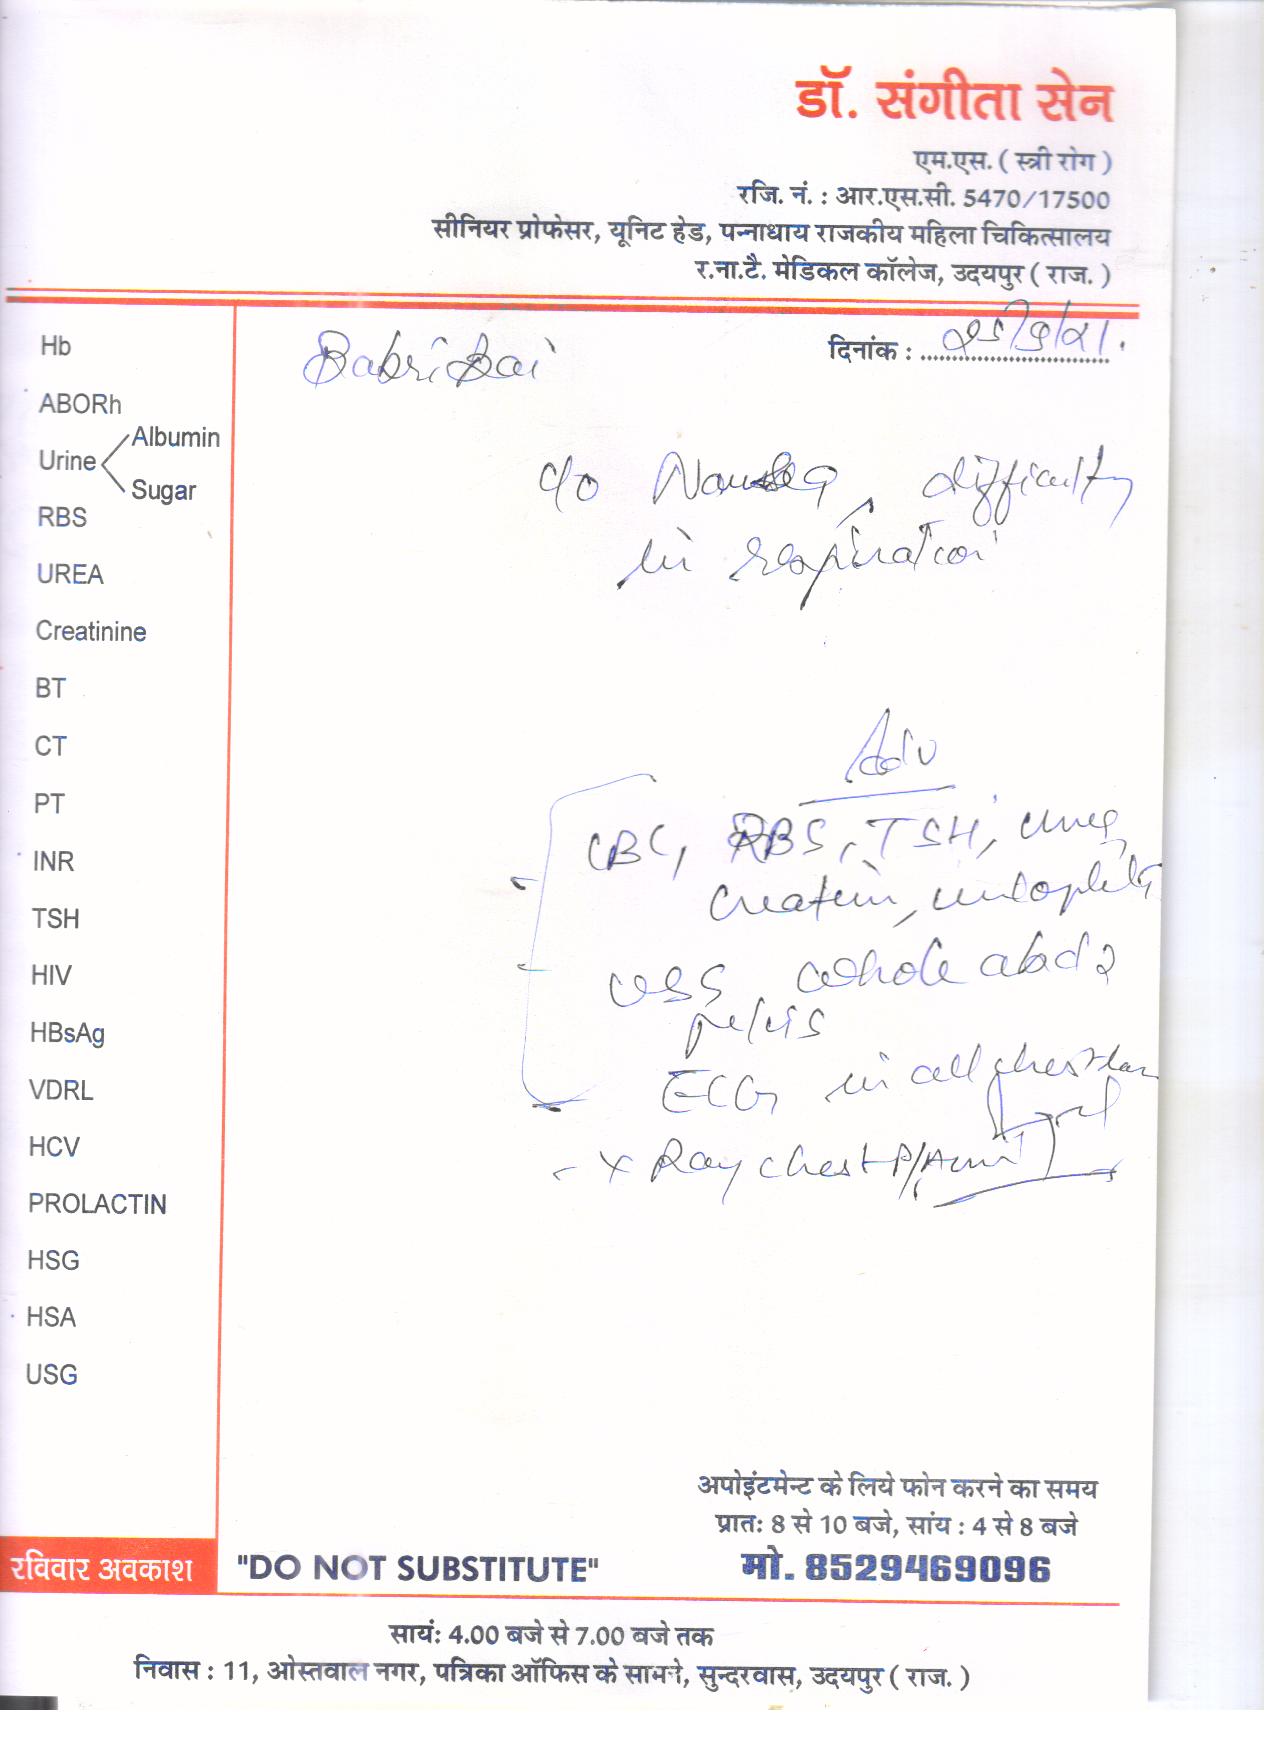 डॉ. संगीता सेन
एम.एस. ( स्त्री रोग )
रजि. नं. : आर.एस.सी. 5470/17500
सीनियर प्रोफेसर, यूनिट हेड, पन्नाधाय राजकीय महिला चिकित्सालय
र.ना.टै. मेडिकल कॉलेज, उदयपुर ( राज. )
दिनांक :
Babri Bai
Hb
ABORh
Urine
Albumin
Sugar
RBS
UREA
Creatinine
BT
CT
PT
INR
TSH
HIV
HBsAg
VDRL
HCV
PROLACTIN
HSG
HSA
USG
c/o Nausea, difficulty
in respiration
Adv
CBC, RBS, TSH,
USG whole abd &
pelvis
ECG in all chest
X Ray chest P/A
अपोइंटमेन्ट के लिये फोन करने का समय
प्रातः 8 से 10 बजे, सांय : 4 से 8 बजे
मो. 8529469096
रविवार अवकाश
"DO NOT SUBSTITUTE"
सायं: 4.00 बजे से 7.00 बजे तक
निवास : 11, ओस्तवाल नगर, पत्रिका ऑफिस के सामने, सुन्दरवास, उदयपुर ( राज. )